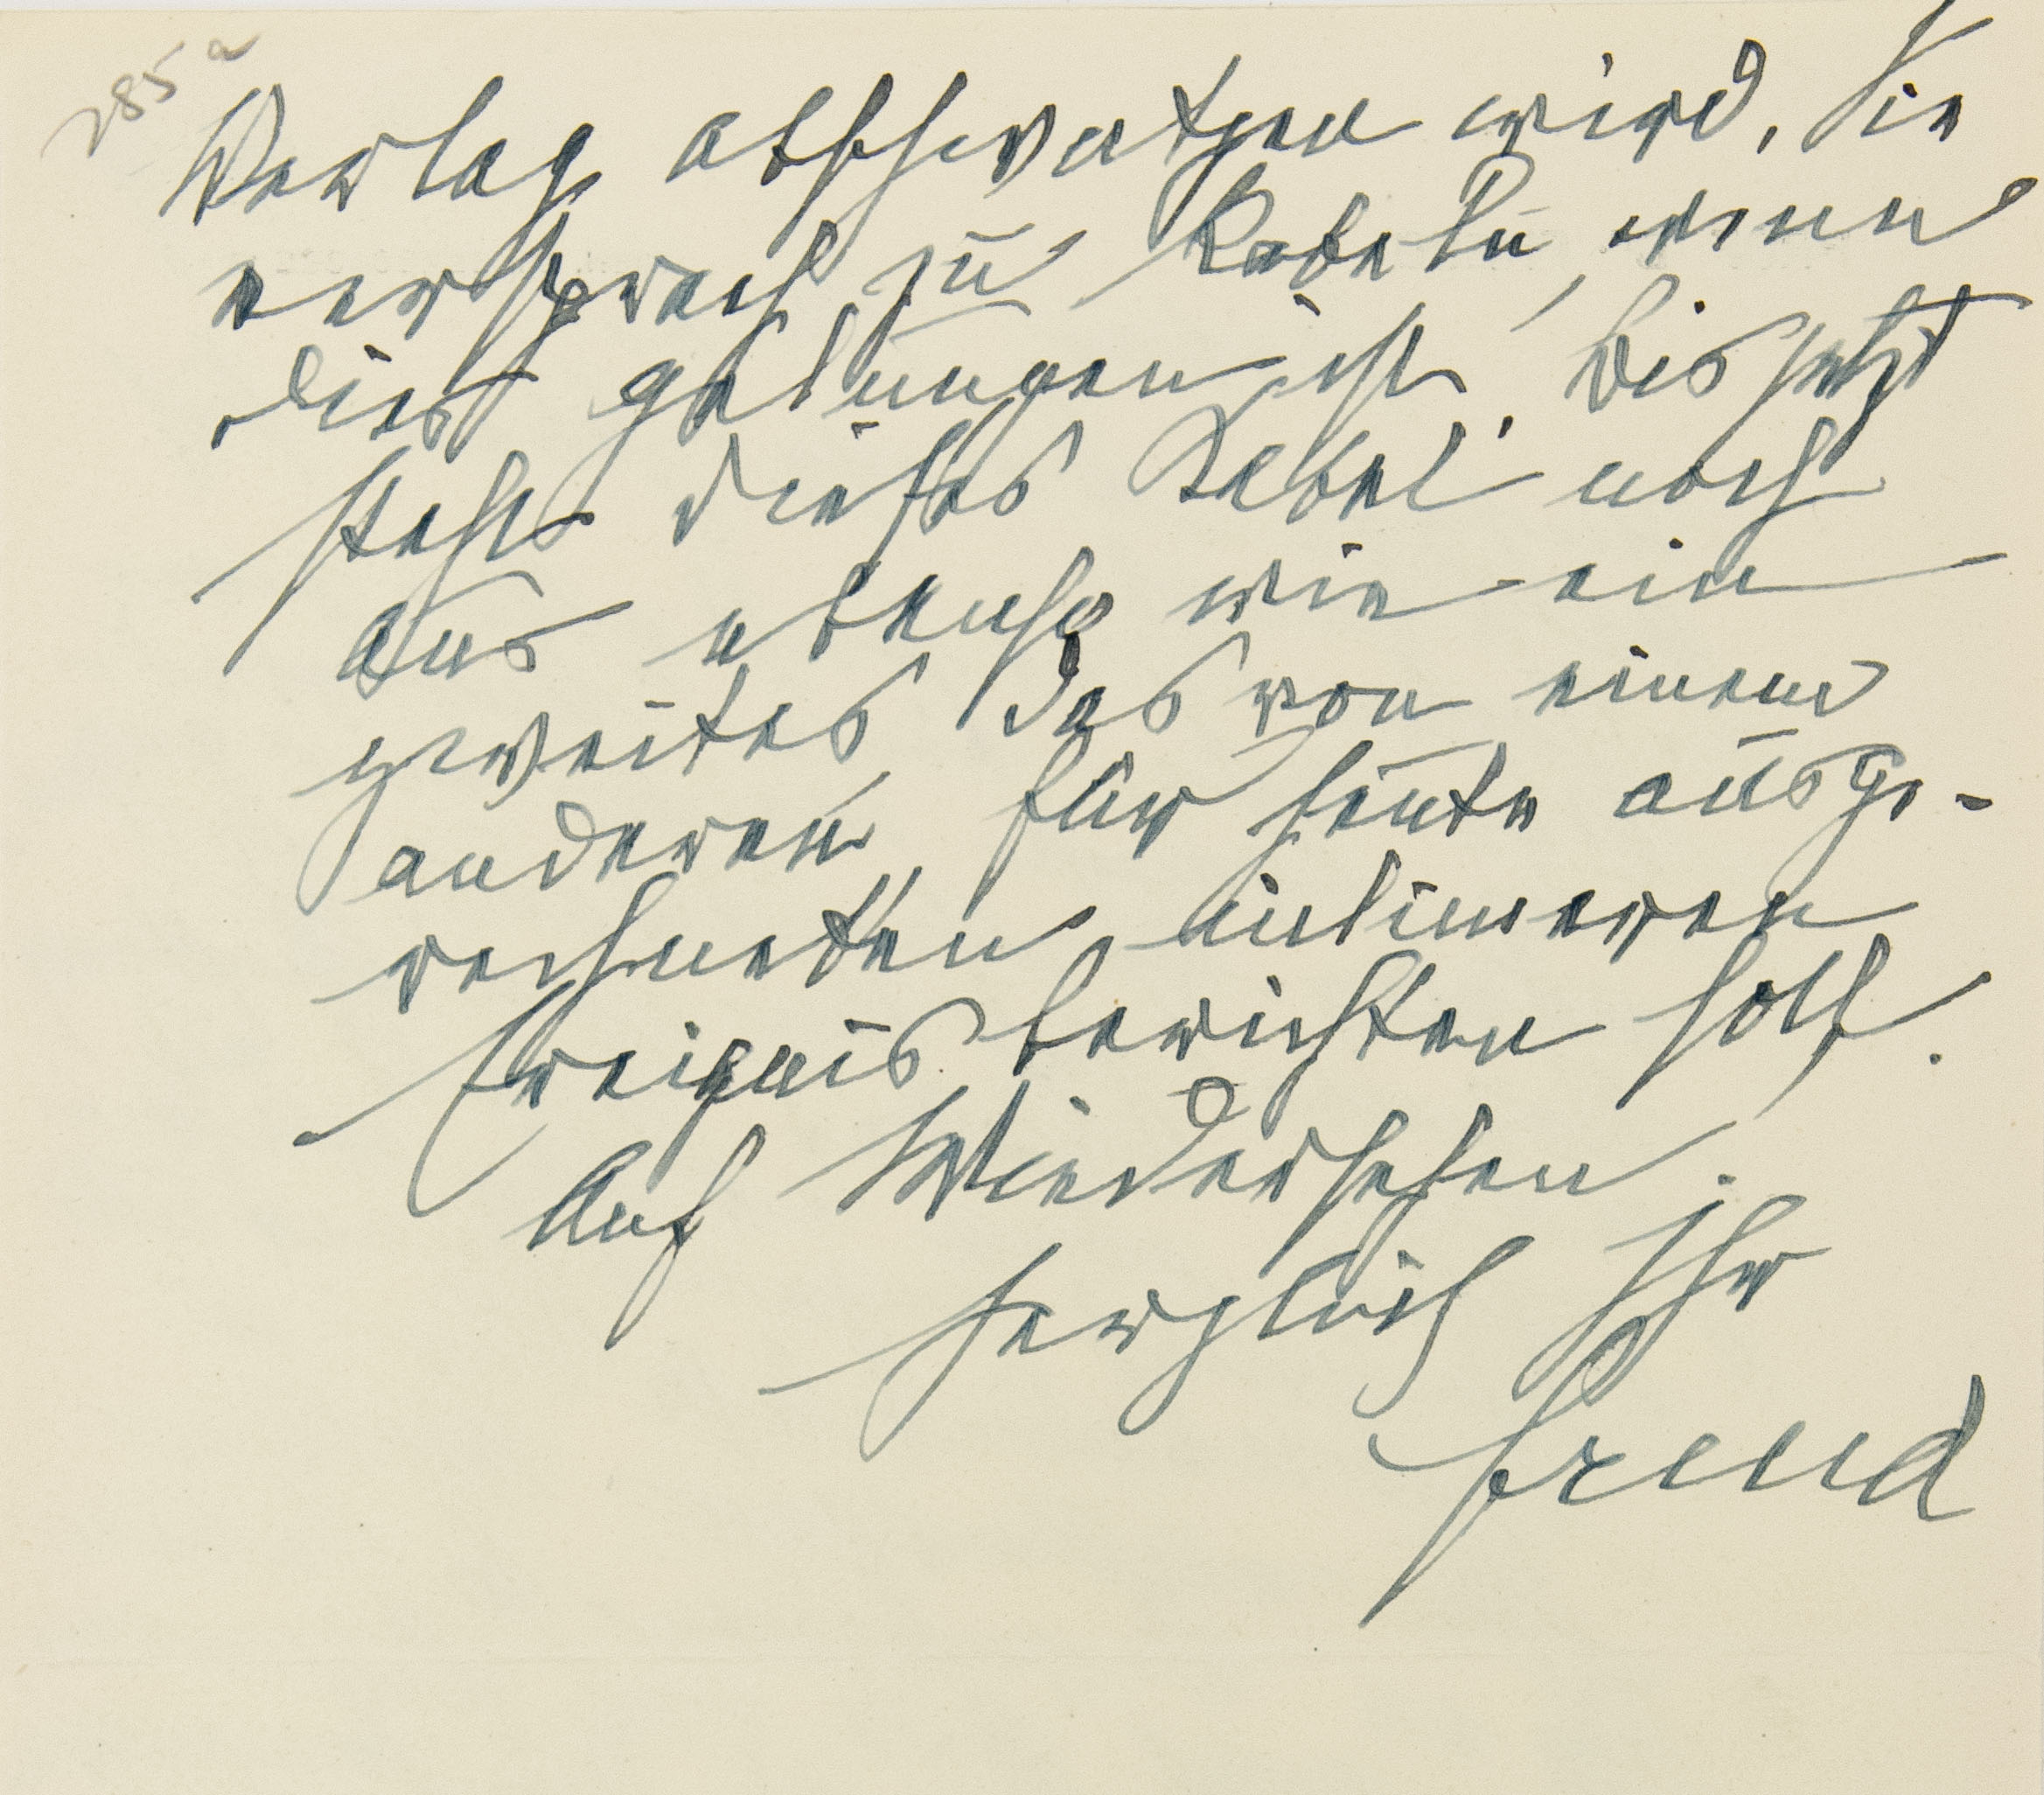 285 a
Verlag abschwatzen wird. Sie
versprach zu kabeln, wenn
dies gelungen ist. Bis jetzt
steht dieses Kabel noch
aus ebenso wie ein
zweites, das von einem
anderen, für heute ausge-
rechneten, intimeren
Ereignis berichten soll.
Auf Wiedersehen.
herzlich Ihr
Freud